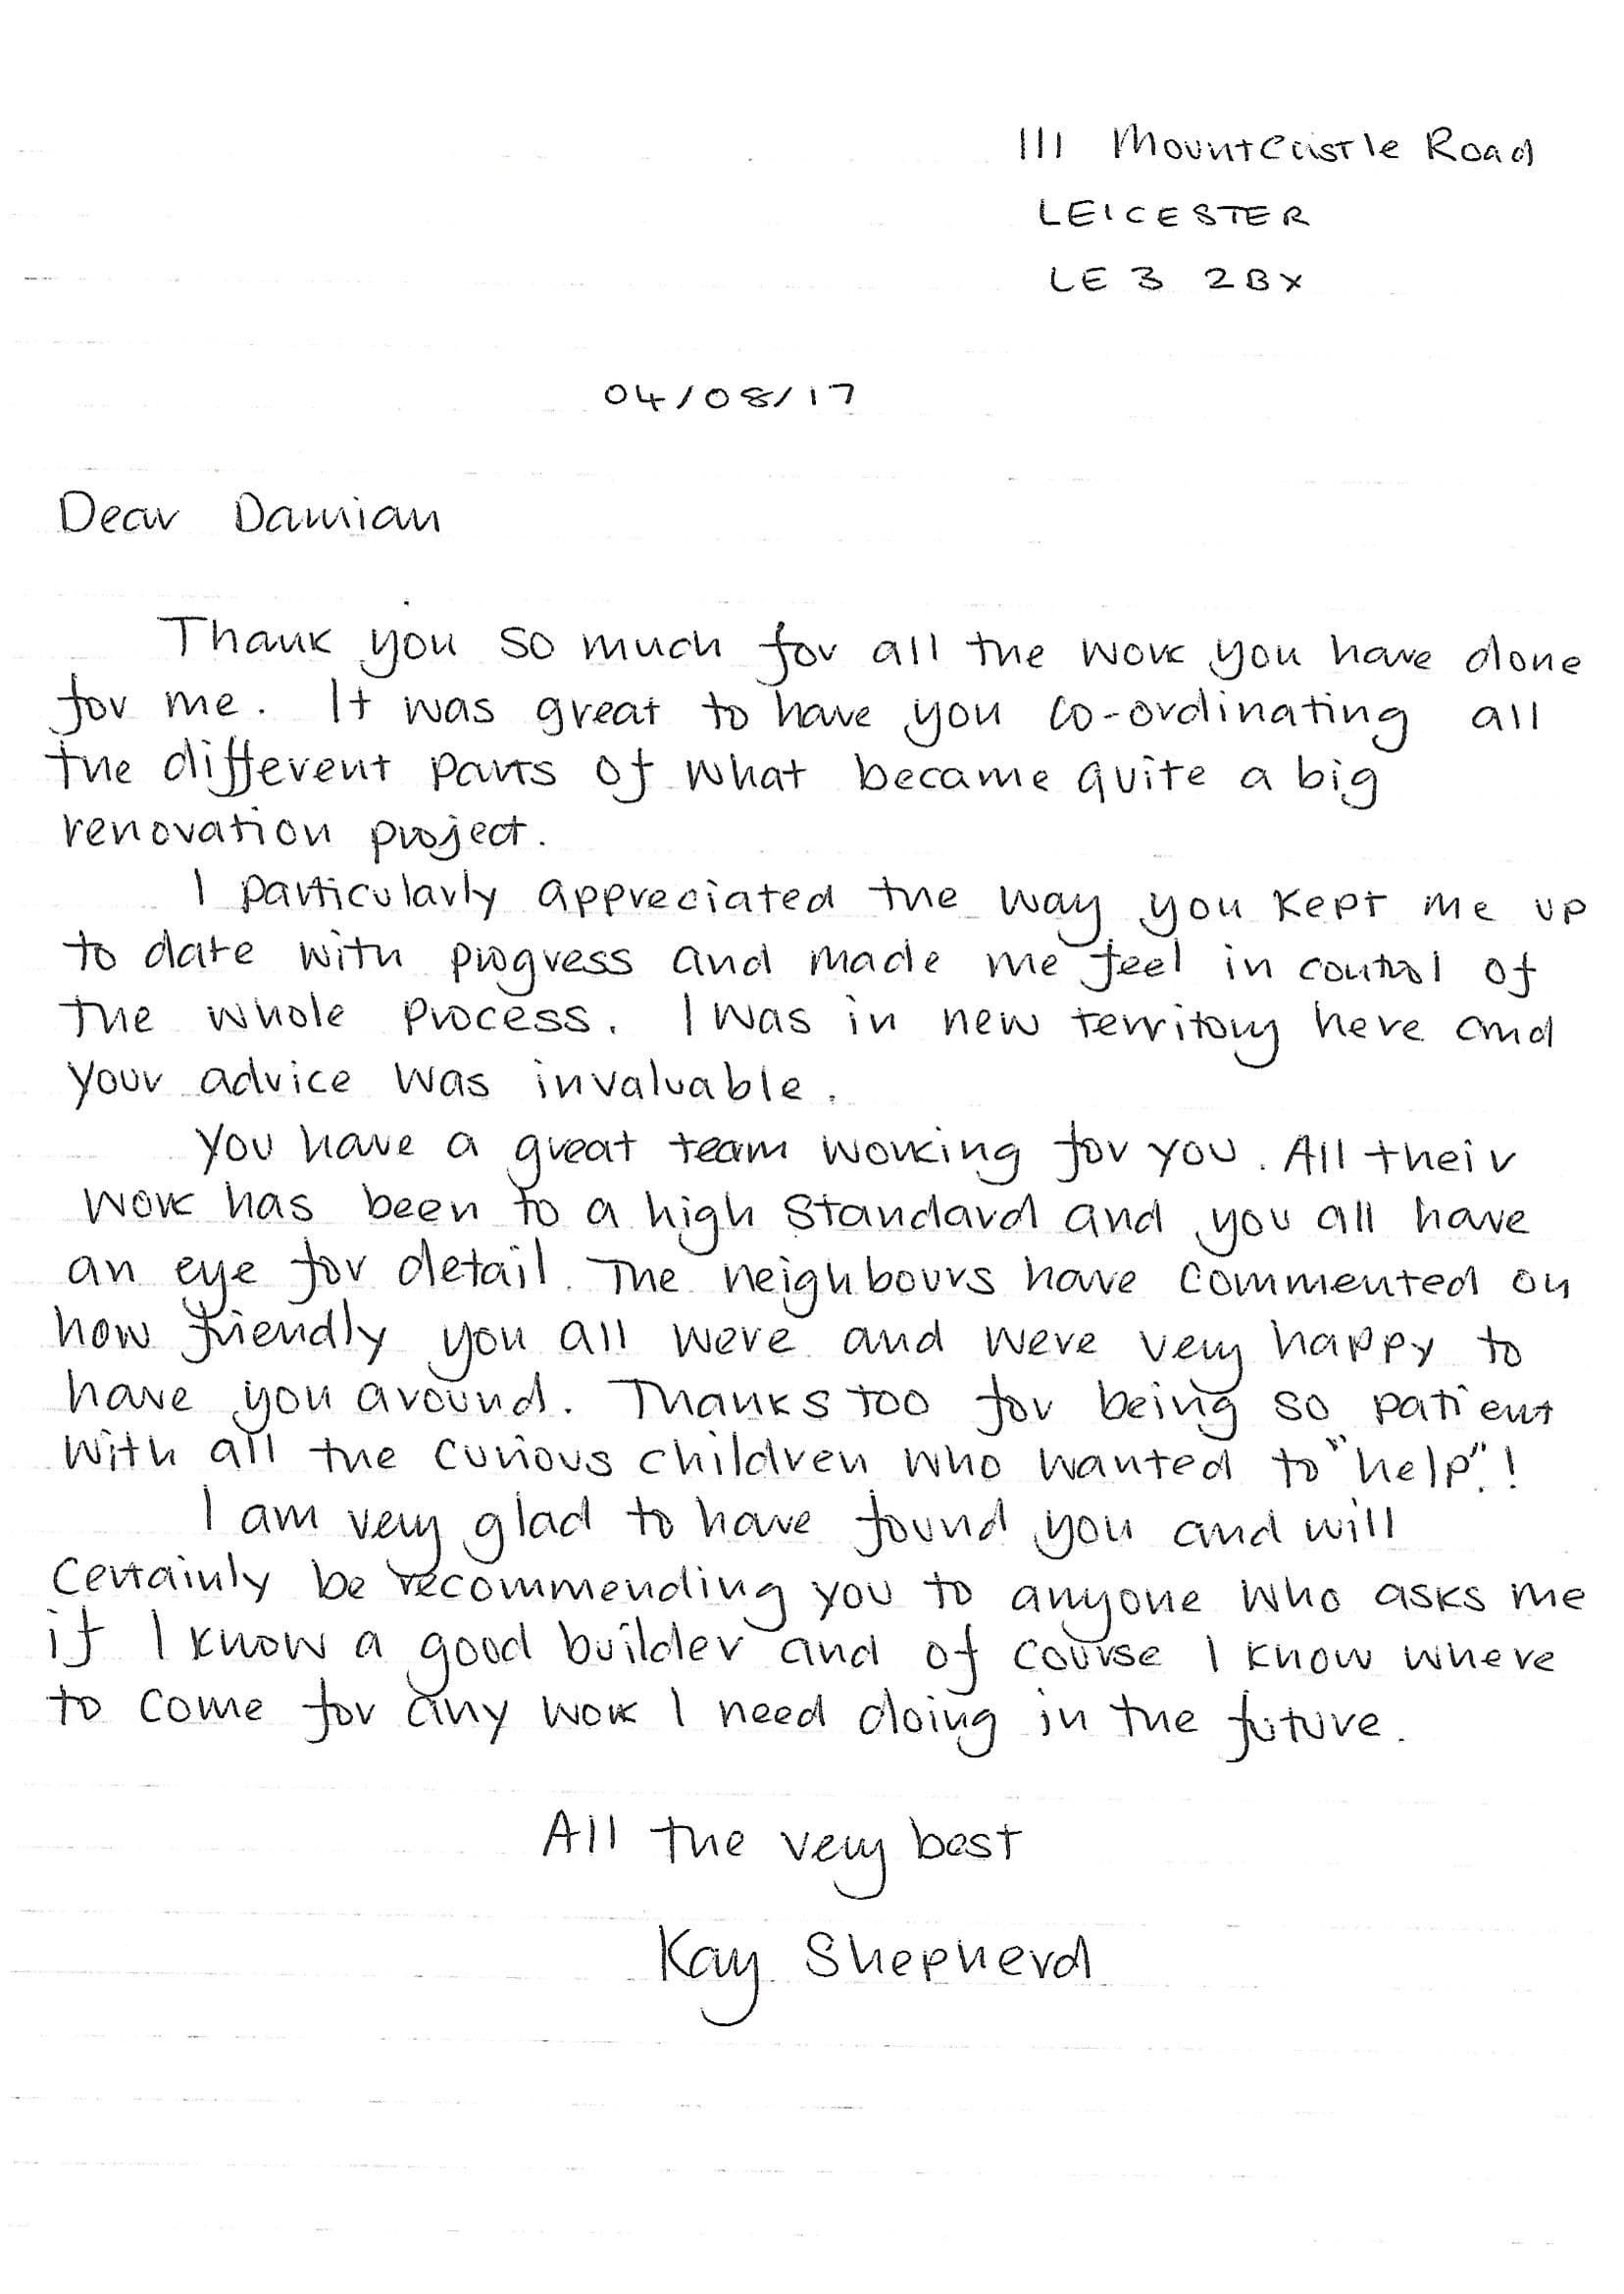 111 Mountcastle Road
LEICESTER
LE3 2BX
04/08/17
Dear Damian
Thank you so much for all the work you have done
for me. It was great to have you co-ordinating all
the different parts of what became quite a big
renovation project.
I particularly appreciated the way you kept me up
to date with progress and made me feel in control of
the whole process. I was in new territory here and
your advice was invaluable.
You have a great team working for you. All their
work has been to a high standard and you all have
an eye for detail. The neighbours have commented on
how friendly you all were and were very happy to
have you around. Thanks too for being so patient
with all the curious children who wanted to "help".!
I am very glad to have found you and will
certainly be recommending you to anyone who asks me
if I know a good builder and of course I know where
to come for any work I need doing in the future.
All the very best
Kay Shepherd